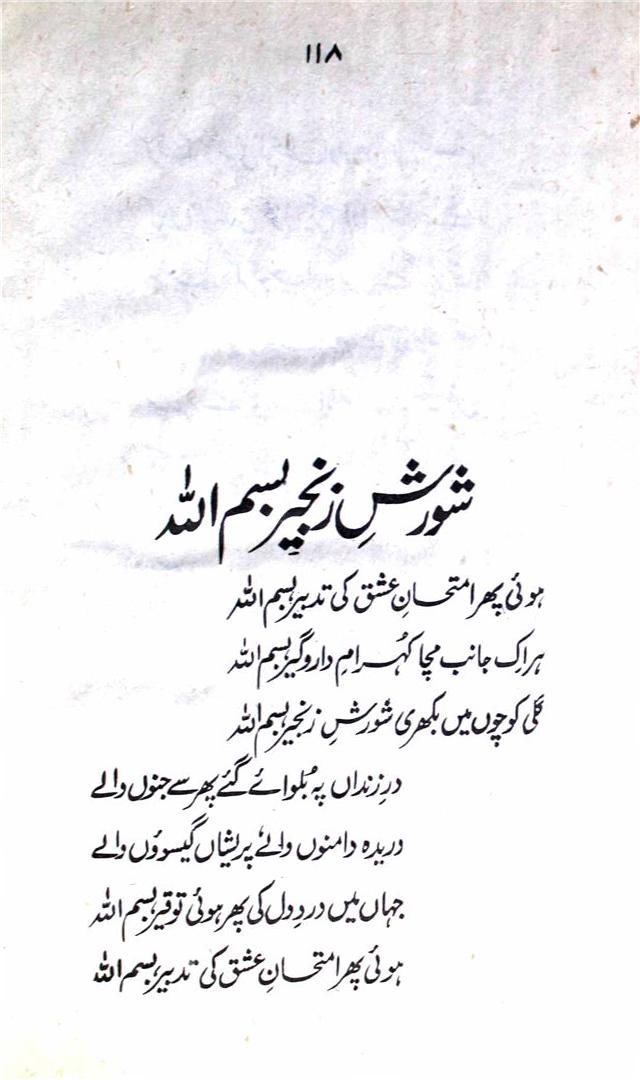 ۱۱۸
شورشِ زنجیر بسم اللہ
ہوئی پھر امتحانِ عشق کی تدبیر بسم اللہ
ہر اِک جانب مچا کہُرامِ دار و گیر بسم اللہ
گلی کوچوں میں بکھری شورشِ زنجیر بسم اللہ
درِ زنداں پہ بُلوائے گئے پھر سے جنوں والے
دریدہ دامنوں والے، پریشاں گیسوؤں والے
جہاں میں دردِ دل کی پھر ہوئی توقیر بسم اللہ
ہوئی پھر امتحانِ عشق کی تدبیر، بسم اللہ